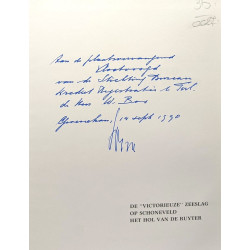 Aan de plaatsvervangend
van de Stichting Bureau
Krediet Registratie te Tiel
de Heer W. Bos
14 sept 1990
DE "VICTORIEUZE" ZEESLAG
OP SCHONEVELD
HET HOL VAN DE RUYTER